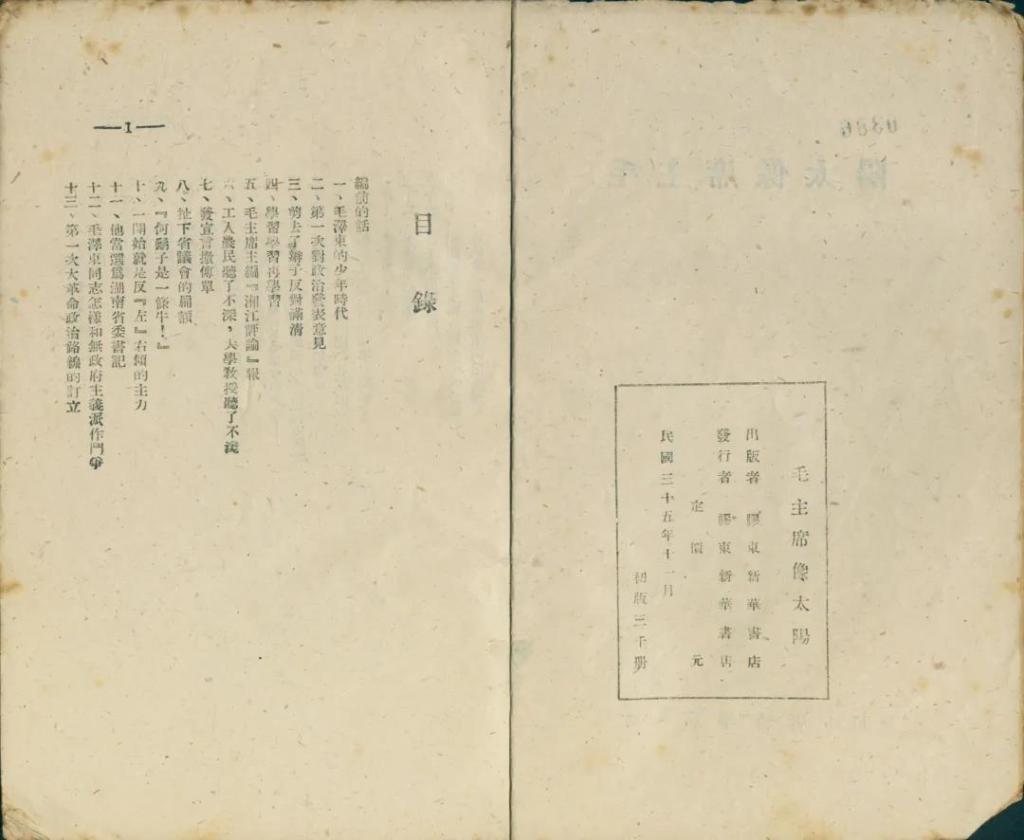 毛主席像太陽
出版者 膠東新華書店
發行者 膠東新華書店
定價 元
民國三十五年十一月
初版三千冊
目錄
編前的話
一、毛澤東的少年時代
二、第一次對政治發表意見
三、剪去了辮子反對滿清
四、學習學習再學習
五、毛主席主編『湘江評論』報
六、工人農民聽了不深，大學教授聽了不淺
七、發宣言撒傳單
八、扯下省議會的扁額
九、『何鬍子是一條牛！』
十、一開始就是反『左』右傾的主力
十一、他當選爲湖南省委書記
十二、毛澤東同志怎樣和無政府主義派作鬥爭
十三、第一次大革命政治路綫的訂立
—1—